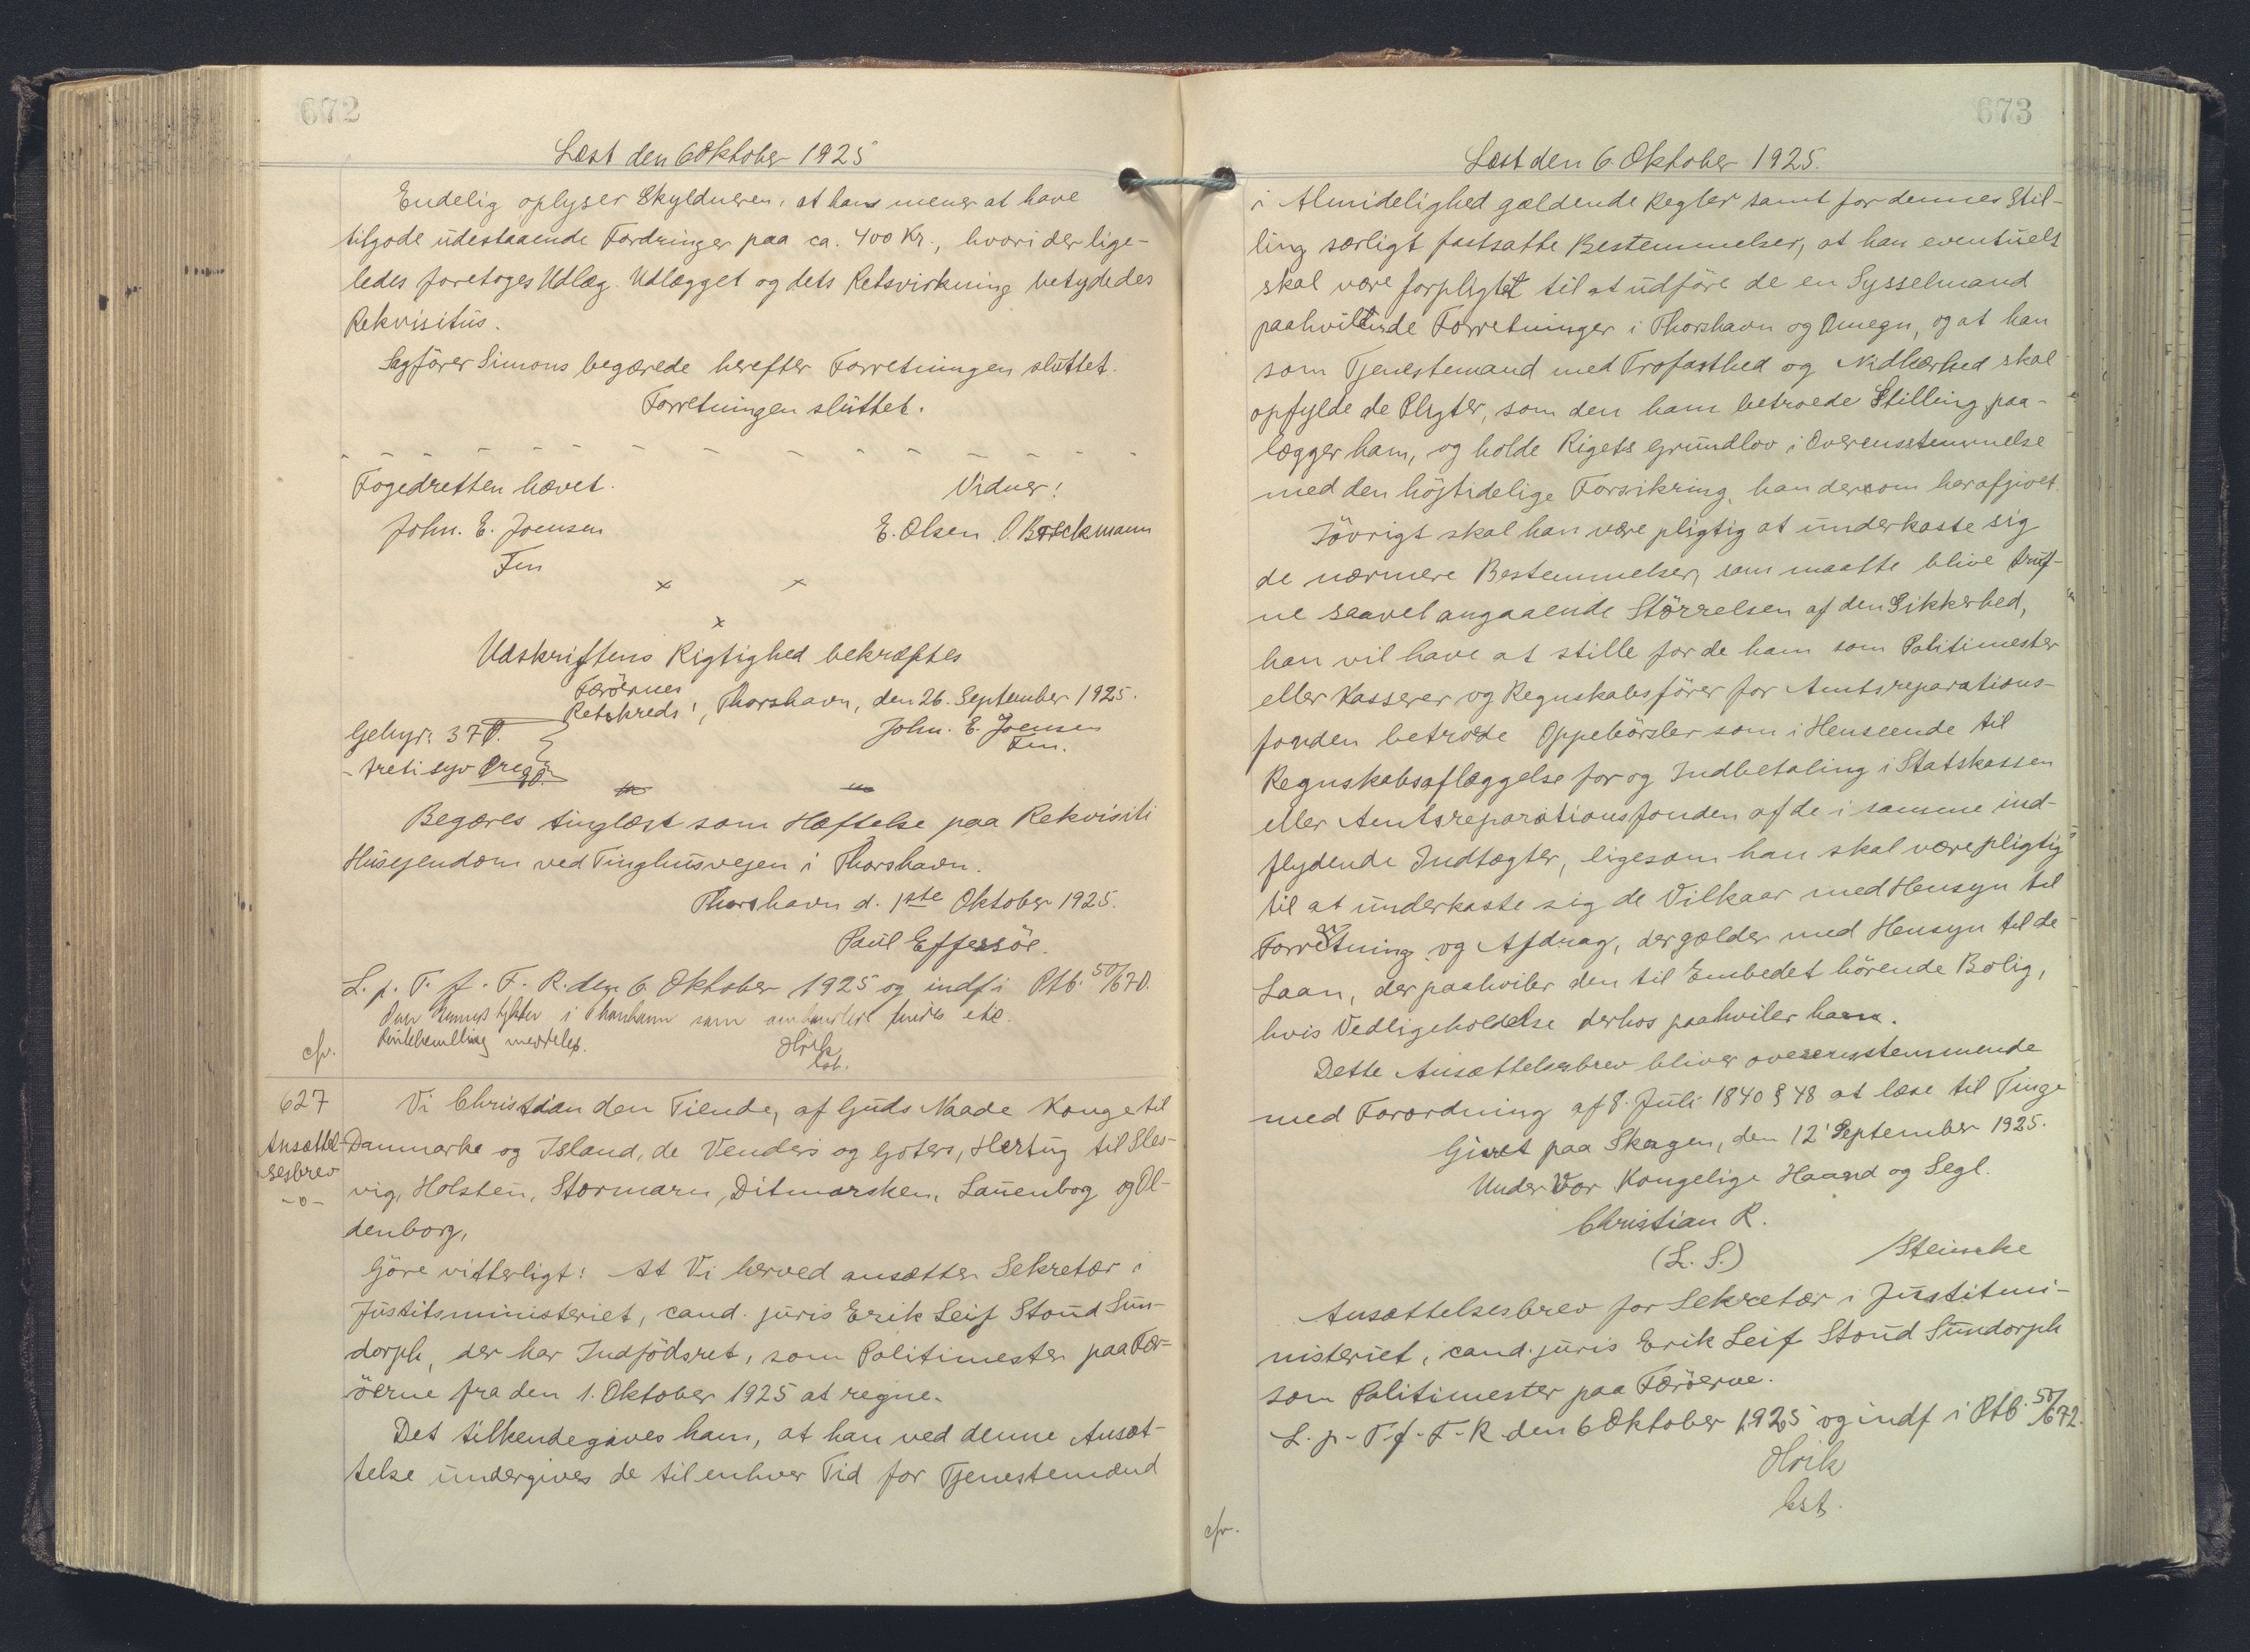 672
Læst den 6 Oktober 1925
Endelig oplyser Skyldneren, at hans mener at have
tilgode udestaaende Fordringer paa ca. 400 Kr., hvori der lige-
ledes foretoges Udlæg. Udlægget og dets Retsvirkning betydedes
Rekvisitus.
Sagfører Simons begærede herefter Forretningen sluttet.
Forretningen sluttet.
Fogedretten hævet.
Vidner:
John. E. Joensen
E. Olsen O. Boeckmann
Fm
x x
x
Udskriftens Rigtighed bekræftes
Færøernes
Retskreds', Thorshavn, den 26. September 1925.
Gebyr: 37 Ø.
John. E. Joensen
Fm.
- treti syv Øre
Begæres tinglæst som Hæftelse paa Rekvisiti
Husejendom ved Tinghusvejen i Thorshavn.
Thorshavn d. 1ste Oktober 1925.
Paul Effersöe.
L. p. T. f. F. R. den 6. Oktober 1925 og indf i Ptb. 50/670.
i Thorshavn som
meddeles.
cfr.
627
Ansættel-
sesbrev
-o-
Vi Christian den Tiende, af Guds Naade Konge til
Danmarke og Island, de Venders og Goters, Hertug til Sles-
vig, Holsten, Stormarn, Ditmarsken, Lauenborg og Ol-
denborg,
Göre vitterligt: At Vi herved ansætter Sekretær i
Justitsministeriet, cand. juris Erik Leif Stoud Sun-
dorph, der har Indfödsret, som Politimester paa Fær-
öerne fra den 1. Oktober 1925 at regne.
Det tilkendegives ham, at han ved denne Ansæt-
telse undergives de til enhver Tid for Tjenestemænd
673
Læst den 6. Oktober 1925.
i Almidelighed gældende Regler samt for dennes Stil-
ling særligt fastsatte Bestemmelser, at han eventuels
skal være forpligtet til at udföre de en Sysselmand
paahvilende Forretninger i Thorshavn og Omegn, og at han
som Tjenestemand med Trofasthed og Nidkærhed skal
opfylde de Pligter, som den ham betroede Stilling paa-
lægger ham, og holde Rigets Grundlov i Overensstemmelse
med den höjtidelige Forsikring, han dersom har afgivet.
Iövrigt skal han være pligtig at underkaste sig
de nærmere Bestemmelser, som maatte blive truf-
ne saavel angaaende Störrelsen af den Sikkerhed,
han vil have at stille for de ham som Politimester
eller Kasserer og Regnskabsförer for Amtsreparations-
fonden betroede Oppebörsler som i Henseende til
Regnskabsaflæggelse for og Indbetaling i Statskassen
eller Amtsreparationsfonden af de i samme ind-
flydende Indtægter, ligesom han skal være pligtig
til at underkaste sig de Vilkaar med Hensyn til
Forretning og Afdrag, der gælder med Hensyn til de
Laan, der paahviler den til Embedet hörende Bolig,
hvis Vedligeholdelse derhos paahviler ham.
Dette Ansættelsesbrev bliver overensstemmende
med Forordning af 8. Juli 1840 § 48 at læse til Tinge
Givet paa Skagen, den 12' September 1925.
Under Vor Kongelige Haand og Segl.
Christian R.
(L. S.)
/Steincke
Ansættelsesbrev for Sekretær i Justitmi-
nisteriet, cand. juris Erik Leif Stoud Sundorph
som Politimester paa Færöerne.
L. p. T. f. F. R. den 6 Oktober 1925 og indf i Ptb. 50/672.
cst.
cfr.